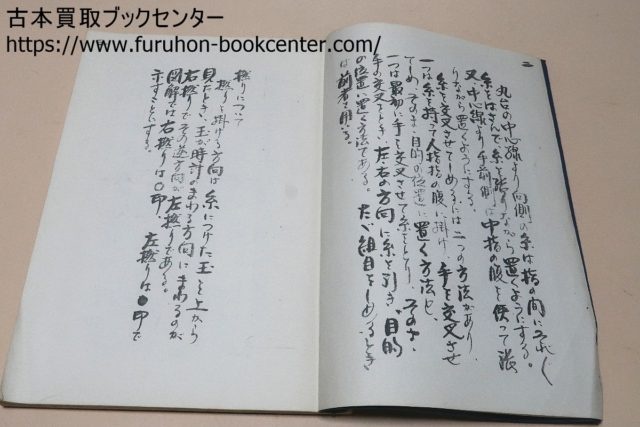 古本買取ブックセンター
https://www.furuhon-bookcenter.com/
二
丸台の中心線より向側の糸は指の間にそれぞれ
糸をはさんで糸を張りながら置くようにする。
又、中心線より手前側は中指の腹を使って張
りながら置くようにする。
糸を交叉させてしめるには二つの方法があり、
一つは糸を持って人指指の腹に掛け 手を交叉させ
てしめ、そのまゝ目的の位置に置く方法と、
一つは最初に手を交叉させて糸をとり、そのまゝ
手の交叉をとき、左右の方向に糸を引き、目的
の位置に置く方法である。たゞ組目をしめるとき
は前者を用いる。
撚りについて
撚りを掛ける方向は糸につけた玉を上から
見たとき、玉が時計のまわる方向にまわるのが
右撚りでその逆方向が左撚りである。
図解では右撚りは○印、左撚りは●印で
示すことにする。